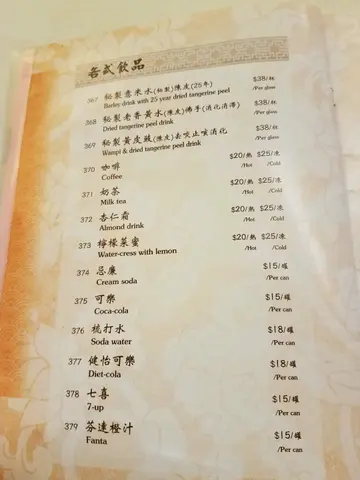 各式飲品
367 秘製薏米水(秘製)陳皮(25年) $38/杯
Barley drink with 25 year dried tangerine peel /Per glass
368 秘製老香黃水(陳皮)佛手(消化消滯) $38/杯
Dried tangerine peel drink /Per glass
369 秘製黃皮豉(陳皮)去痰止咳消化 $38/杯
Wampi & dried tangerine peel drink /Per glass
370 咖啡 $20/熱 $25/凍
Coffee /Hot /Cold
371 奶茶 $20/熱 $25/凍
Milk tea /Hot /Cold
372 杏仁霜 $20/熱 $25/凍
Almond drink /Hot /Cold
373 檸檬菜蜜 $20/熱 $25/凍
Water-cress with lemon /Hot /Cold
374 忌廉 $15/罐
Cream soda /Per can
375 可樂 $15/罐
Coca-cola /Per can
376 梳打水 $18/罐
Soda water /Per can
377 健怡可樂 $18/罐
Diet-cola /Per can
378 七喜 $15/罐
7-up /Per can
379 芬達橙汁 $15/罐
Fanta /Per can